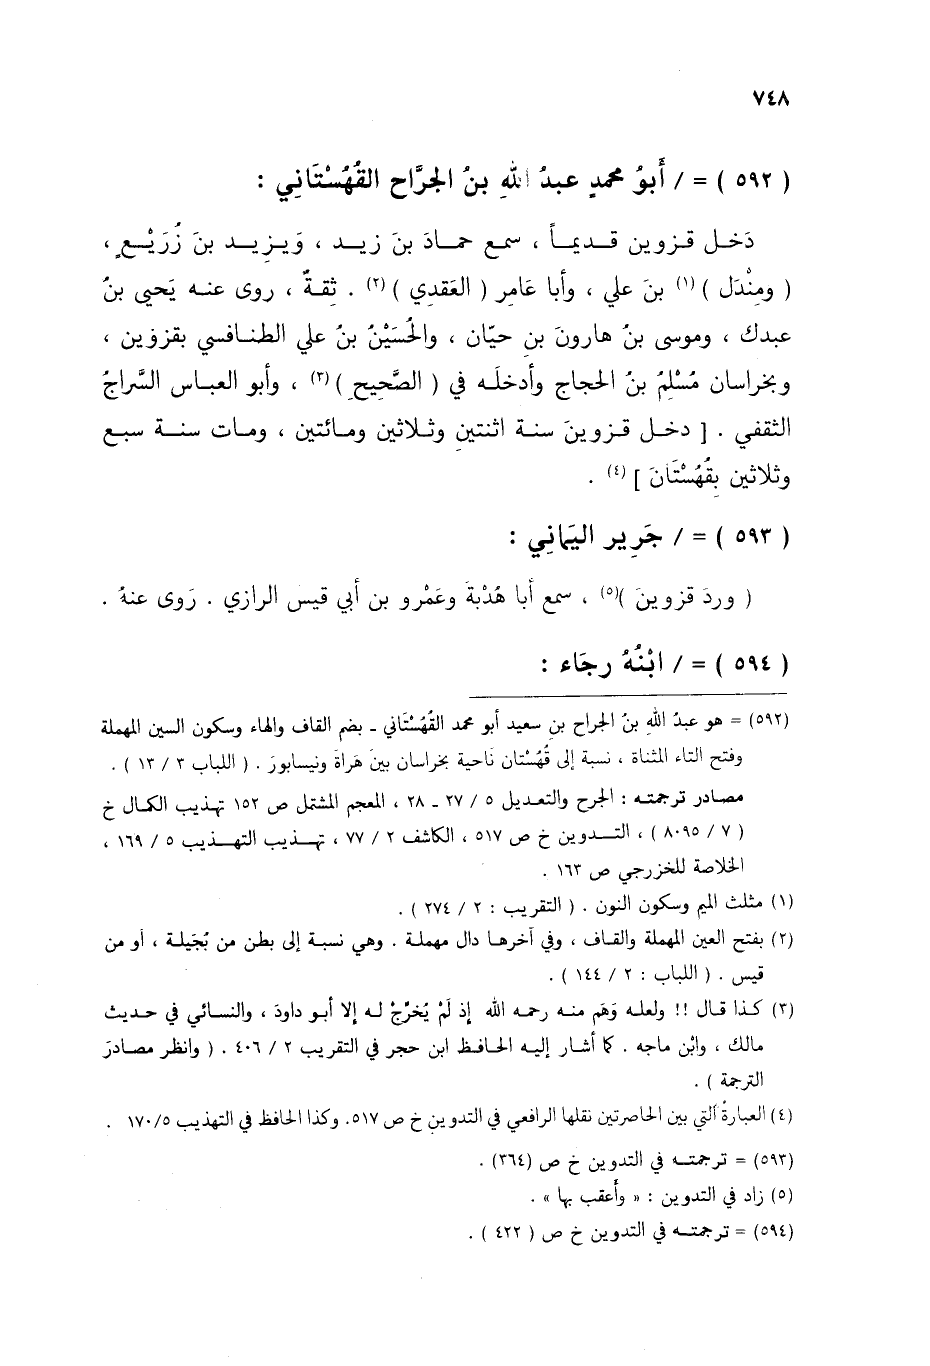 ٧٤٨
( ٥٩٢ ) = / أَبوُ محمدٍ عبدُ اللهِ بنُ الجرَّاح القُهُسْتَاني :
دَخـل قـزوين قـديمـاً ، سمع حمـادَ بنَ زيـد ، وَيـزيـد بنَ زُرَيْـعٍ ،
( ومِنْدَل )⁽١⁾ بنَ علي ، وأبا عَامِر ( العَقدي )⁽٢⁾ . ثقـةٌ ، روى عنـه يَحيى بنُ
عبدك ، وموسى بنُ هارونَ بنِ حيّان ، والحُسَيْنُ بنُ علي الطنـافسي بقزوين ،
وبخراسان مُسْلِمُ بنُ الحجاج وأدخلَـه في ( الصَّحيحِ )⁽٣⁾ ، وأبو العبـاس السَّراجُ
الثقفي . [ دخـل قـزوينَ سنـة اثنتينِ وثـلاثين ومـائتين ، ومـات سنـــة سبـع
وثلاثين بِقُهُسْتَانَ ]⁽٤⁾ .
( ٥٩٣ ) = / جَرِير اليَمَانِي :
( وردَ قزوينَ )⁽٥⁾ ، سمع أبا هُدْبةَ وعَمْرو بن أبي قيس الرازي . رَوى عنهُ .
( ٥٩٤ ) = / ابْنُهُ رجَاء :
(٥٩٢) = هو عبدُ اللهِ بنُ الجراح بنِ سعيد أبو محمد القُهُسْتَاني ـ بضم القاف والهاء وسكون السين المهملة
وفتح التاء المثناة ، نسبة إلى قُهُسْتان ناحية بخراسان بينَ هَراةَ ونيسابورَ . ( اللباب ٣ / ١٣ ) .
مصادر ترجمته : الجرح والتعديل ٥ / ٢٧ ـ ٢٨ ، المعجم المشتمل ص ١٥٢ تهـذيب الكمال خ
( ٧ / ٨٠٩٥ ) ، التـــدوين خ ص ٥١٧ ، الكاشف ٢ / ٧٧ ، تهـــذيب التهـــذيب ٥ / ١٦٩ ،
الخلاصة للخزرجي ص ١٦٣ .
(١) مثلث الميم وسكون النون . ( التقريب : ٢ / ٢٧٤ ) .
(٢) بفتح العين المهملة والقـاف ، وفي آخرهـا دال مهملـة . وهي نسبـة إلى بطن من بُجَيلـة ، أو من
قيس . ( اللباب : ٢ / ١٤٤ ) .
(٣) كـذا قـال !! ولعلـه وَهَم منـه رحمـه الله إذ لَمْ يُخرِّجْ لـه إلا أبـو داودَ ، والنسـائي في حـديث
مالك ، وابْن ماجه . كما أشـار إليـه الحـافـظ ابن حجر في التقريب ٢ / ٤٠٦ . ( وانظر مصـادرَ
الترجمة ) .
(٤) العبارةُ التي بين الحاصرتين نقلها الرافعي في التدوين خ ص ٥١٧. وكذا الحافظ في التهذيب ١٧٠/٥ .
(٥٩٣) = ترجمتـه في التدوين خ ص (٣٦٤) .
(٥) زاد في التدوين : « وأعقب بها » .
(٥٩٤) = ترجمتـه في التدوين خ ص ( ٤٢٢ ) .